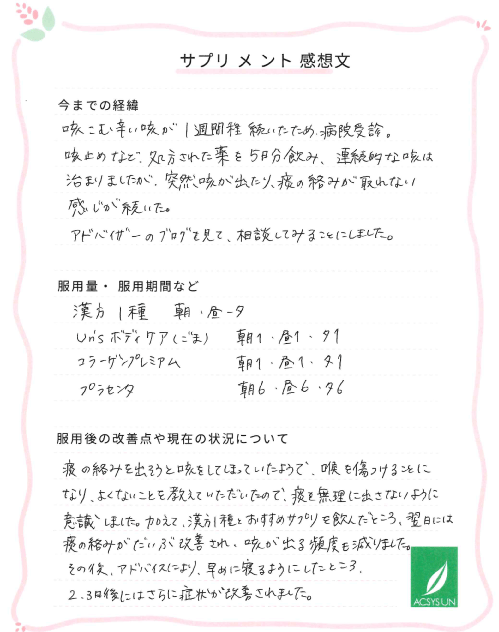 サプリメント感想文
今までの経緯
咳こむ辛い咳が1週間程続いたため、病院受診。
咳止めなど、処方された薬を5日分飲み、連続的な咳は
治まりましたが、突然咳が出たり、痰の絡みが取れない
感じが続いた。
アドバイザーのブログを見て、相談してみることにしました。
服用量・服用期間など
漢方1種 朝・昼・夕
Un's ボディケア(ごま) 朝1・昼1・夕1
コラーゲンプレミアム 朝1・昼1・夕1
プラセンタ 朝6・昼6・夕6
服用後の改善点や現在の状況について
痰の絡みを出そうと咳をしてしまっていたようで、喉を傷つけることに
なり、よくないことを教えていただいたので、痰を無理に出さないように
意識しました。加えて、漢方1種とおすすめサプリを飲んだところ、翌日には
痰の絡みがだいぶ改善され、咳が出る頻度も減りました。
その後、アドバイスにより、早めに寝るようにしたところ、
2、3日後にはさらに症状が改善されました。
ACSYSUN